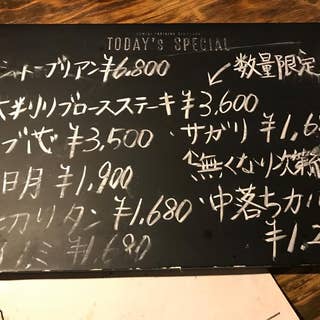 TODAY's SPECIAL
シャトーブリアン ¥6.800
大判リブロースステーキ ¥3.600
ブ芯 ¥3,500
日月 ¥1,900
カリタン ¥1,680
ミ ¥1,680
↙数量限定
サガリ ¥1,6
無くなり次第
中落ちカル
¥1.2